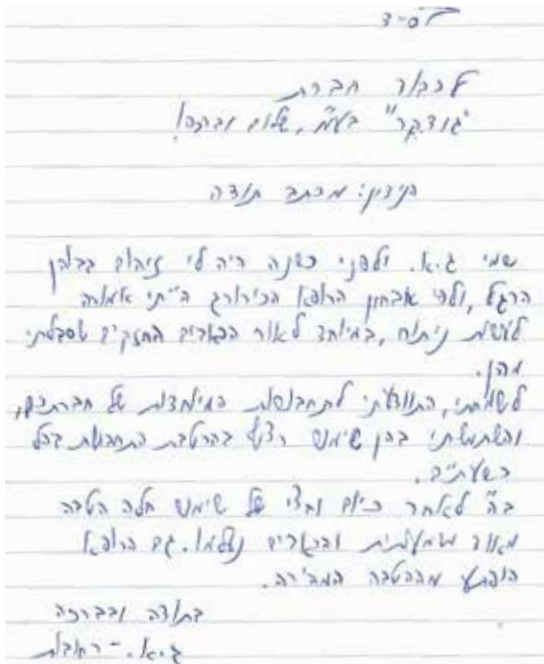 בס"ד
לכבוד חברת
"גודקר" בע"מ, שלום וברכה!
הנידון: מכתב תודה
שמי ג.א. ולפני כשנה היה לי זיהום בבוהן
הרגל, ולפי אבחון הרופא הכירורג הייתי אמורה
לעשות ניתוח, במיוחד לאור הכאבים החזקים שסבלתי
מהן.
לשמחתי, התוודעתי לתחבושות המיוחדות של חברתכם,
והשתמשתי בהן שימוש רצוף בהרטבת התחבושת בכל
כשעתיים.
ב"ה לאחר כיום וחצי של שימוש חלה הטבה
מאוד משמעותית והכאבים נעלמו. גם הרופא
הופתע מההטבה המהירה.
בתודה ובברכה
ג.א. - רחובות